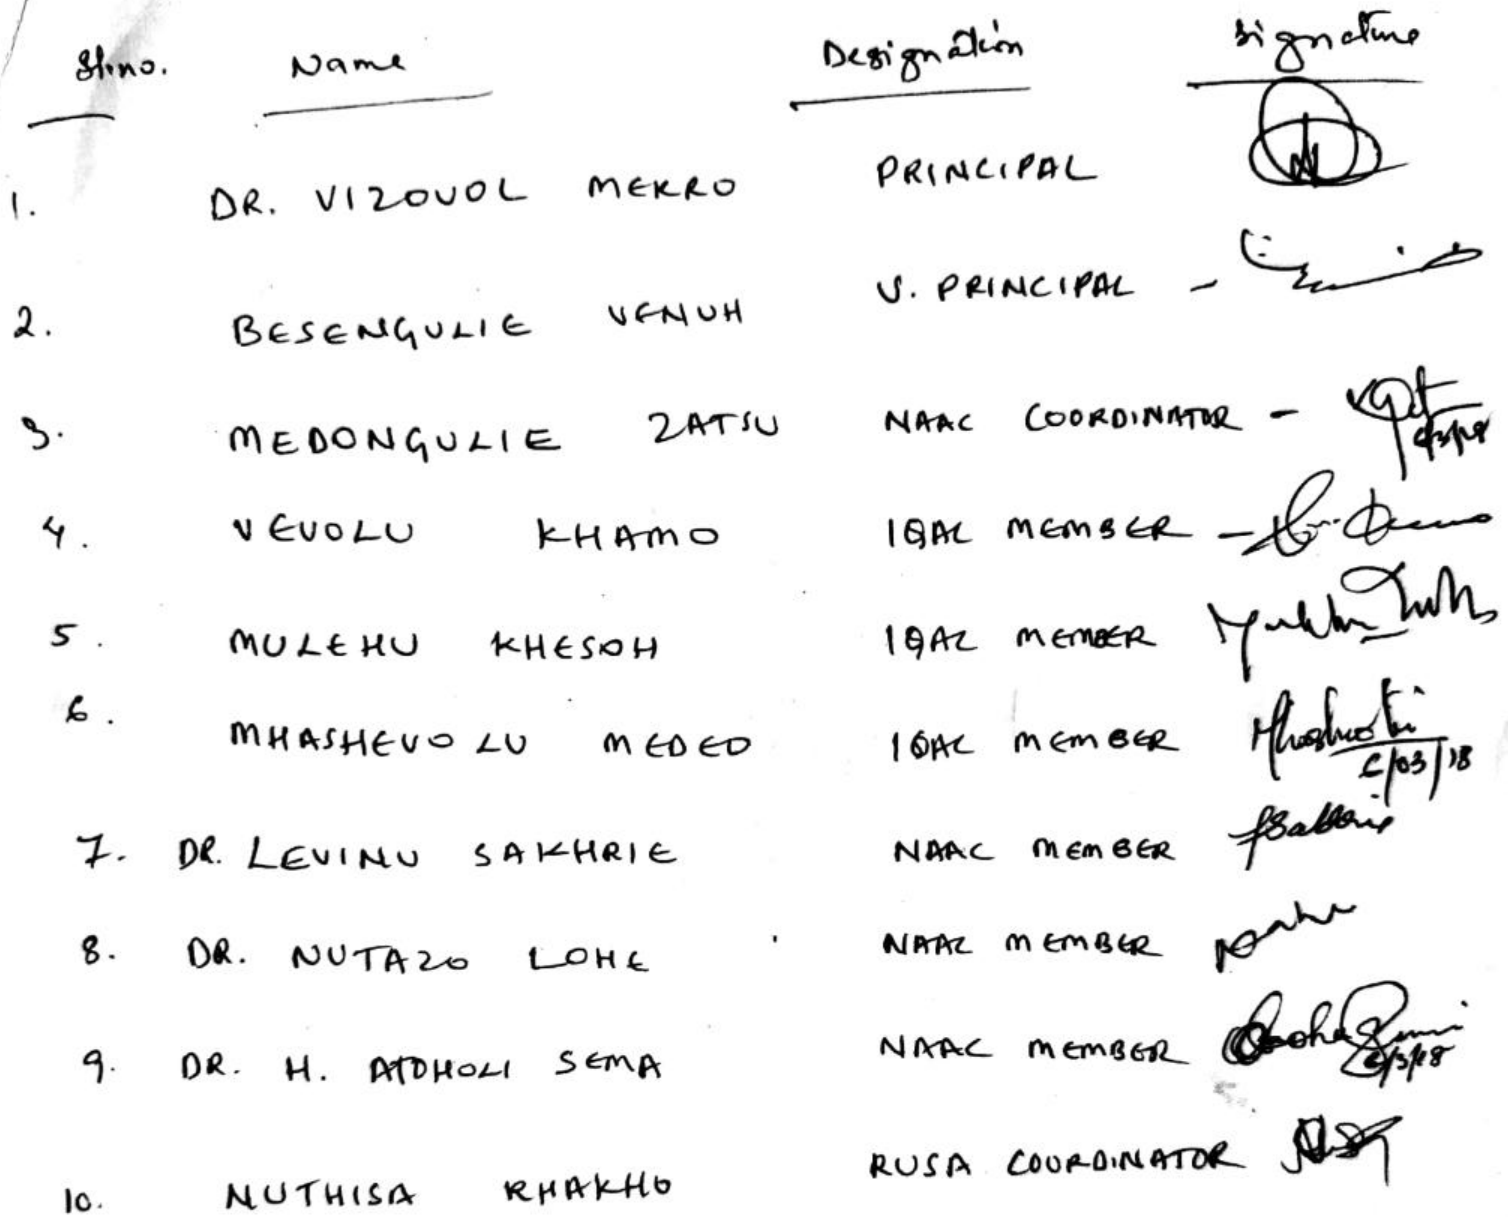 Sl.no. Name Designation Signature
1. DR. VIZOVOL MEKRO PRINCIPAL
2. BESENGULIE VENUH V. PRINCIPAL -
3. MEDONGULIE ZATSU NAAC COORDINATOR - 6/3/18
4. VEVOLU KHAMO IQAC MEMBER -
5. MULEHU KHESOH IQAC MEMBER
6. MHASHEVOLU MEDEO IQAC MEMBER 6/03/18
7. DR. LEVINU SAKHRIE NAAC MEMBER
8. DR. NUTAZO LOHE NAAC MEMBER
9. DR. H. ATOHOLI SEMA NAAC MEMBER 6/3/18
10. NUTHISA RHAKHO RUSA COORDINATOR